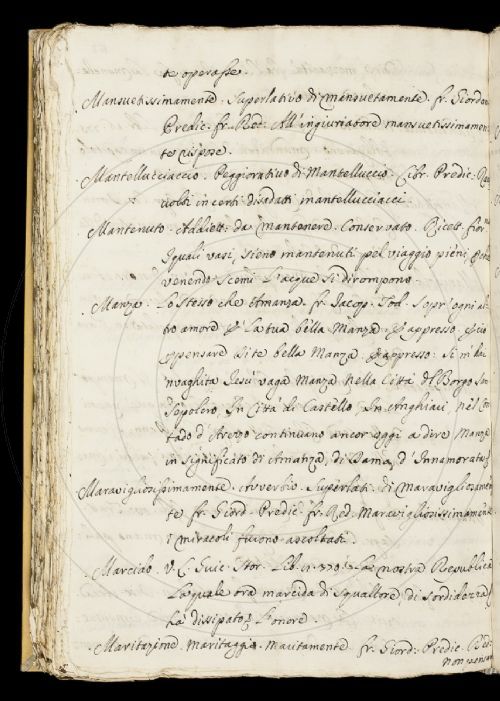 te operasse.
Mansuetissimamente. Superlativo di mansuetamente. fr. Giordan
Predic. fr. Red. All'ingiuriatore mansuetissimamen
te rispose.
Mantellucciaccio. Peggiorativo di Mantelluccio. Libr. Predic.
volti in certi disadatti mantellucciacci.
Mantenuto. Addiett. da mantenere. Conservato. Ricett. fior.
I quali vasi, sieno mantenuti pel viaggio pieni,
venendo scemi l'acque si dirompono.
Manza. Lo stesso che Amanza. fr. Jacop. Tod. Sopr'ogni
bo amore La tua bella Manza. E appresso.
pensare Di te bella Manza. E appresso. Si m'hà
'nvaghita Jesù vaga Manza. Nella Città del Borgo San
Sepolcro, In Città di Castello, In Anghiari, nel Con
tado d'Arezzo continuano ancor oggi a dire Manza
in significato di Amanza, di Dama, d'Innamorata.
Maravigliosissimamente. Avverbio. Superlat. di Maravigliosamen
te fr. Giord. Predic. fr. Red. Maravigliosissimamente
i miracoli furono ascoltati.
Marcido. V. L. Guic. Stor. Lib. La nostra Republica
La quale ora marcida di squallore, di sordidezza
ha dissipato l'onore.
Maritazione. Maritaggio. Maritamento. fr. Giord. Predic. Red.